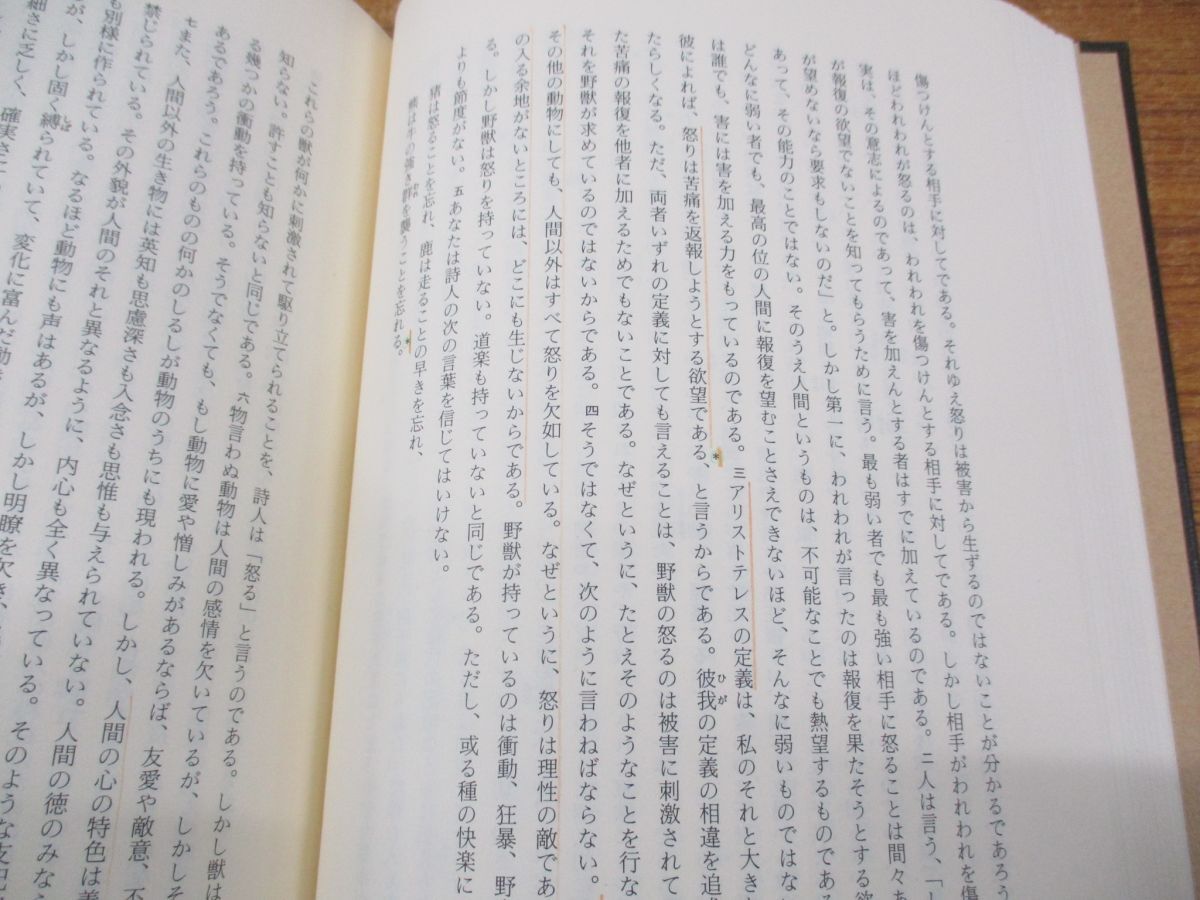 傷つけんとする相手に対してである。それゆえ怒りは被害から生ずるのではないことが分かるであろう
ほどわれわれが怒るのは、われわれを傷つけんとする相手に対してである。しかし相手がわれわれを傷
実は、その意志によるのであって、害を加えんとする者はすでに加えているのである。二人は言う、「
が報復の欲望でないことを知ってもらうために言う。最も弱い者でも最も強い相手に怒ることは間々あ
が望めないなら要求もしないのだ」と。しかし第一に、われわれが言ったのは報復を果たそうとする欲
あって、その能力のことではない。そのうえ人間というものは、不可能なことでも熱望するものである
どんなに弱い者でも、最高の位の人間に報復を望むことさえできないほど、そんなに弱いものではな
は誰でも、害には害を加える力をもっているのである。三アリストテレスの定義は、私のそれと大き
彼によれば、怒りは苦痛を返報しようとする欲望である*、と言うからである。彼我ひがの定義の相違を追
たらしくなる。ただ、両者いずれの定義に対しても言えることは、野獣の怒るのは被害に刺激されて
た苦痛の報復を他者に加えるためでもないことである。なぜというに、たとえそのようなことを行な
それを野獣が求めているのではないからである。四そうではなくて、次のように言わねばならない。
その他の動物にしても、人間以外はすべて怒りを欠如している。なぜというに、怒りは理性の敵であ
の入る余地がないところには、どこにも生じないからである。野獣が持っているのは衝動、狂暴、野
る。しかし野獣は怒りを持っていない。道楽も持っていないと同じである。ただし、或る種の快楽に
よりも節度がない。五あなたは詩人の次の言葉を信じてはいけない。
猪は怒ることを忘れ、鹿は走ることの早きを忘れ、
熊は牛の強き群を襲うことを忘れる*。
これらの獣が何かに刺激されて駆り立てられることを、詩人は「怒る」と言うのである。しかし獣は
知らない。許すことも知らないと同じである。六物言わぬ動物は人間の感情を欠いているが、しかしそ
る幾つかの衝動を持っている。そうでなくても、もし動物に愛や憎しみがあるならば、友愛や敵意、不
あるであろう。これらのものの何かのしるしが動物のうちにも現われる。しかし、人間の心の特色は善
七また、人間以外の生き物には英知も思慮深さも入念さも思惟も与えられていない。人間の徳のみな
禁じられている。その外貌が人間のそれと異なるように、内心も全く異なっている。そのような支配
も別様に作られている。なるほど動物にも声はあるが、しかし明瞭を欠き、
が、しかし固く縛しばられていて、変化に富んだ動
細さに乏しく、確実さ